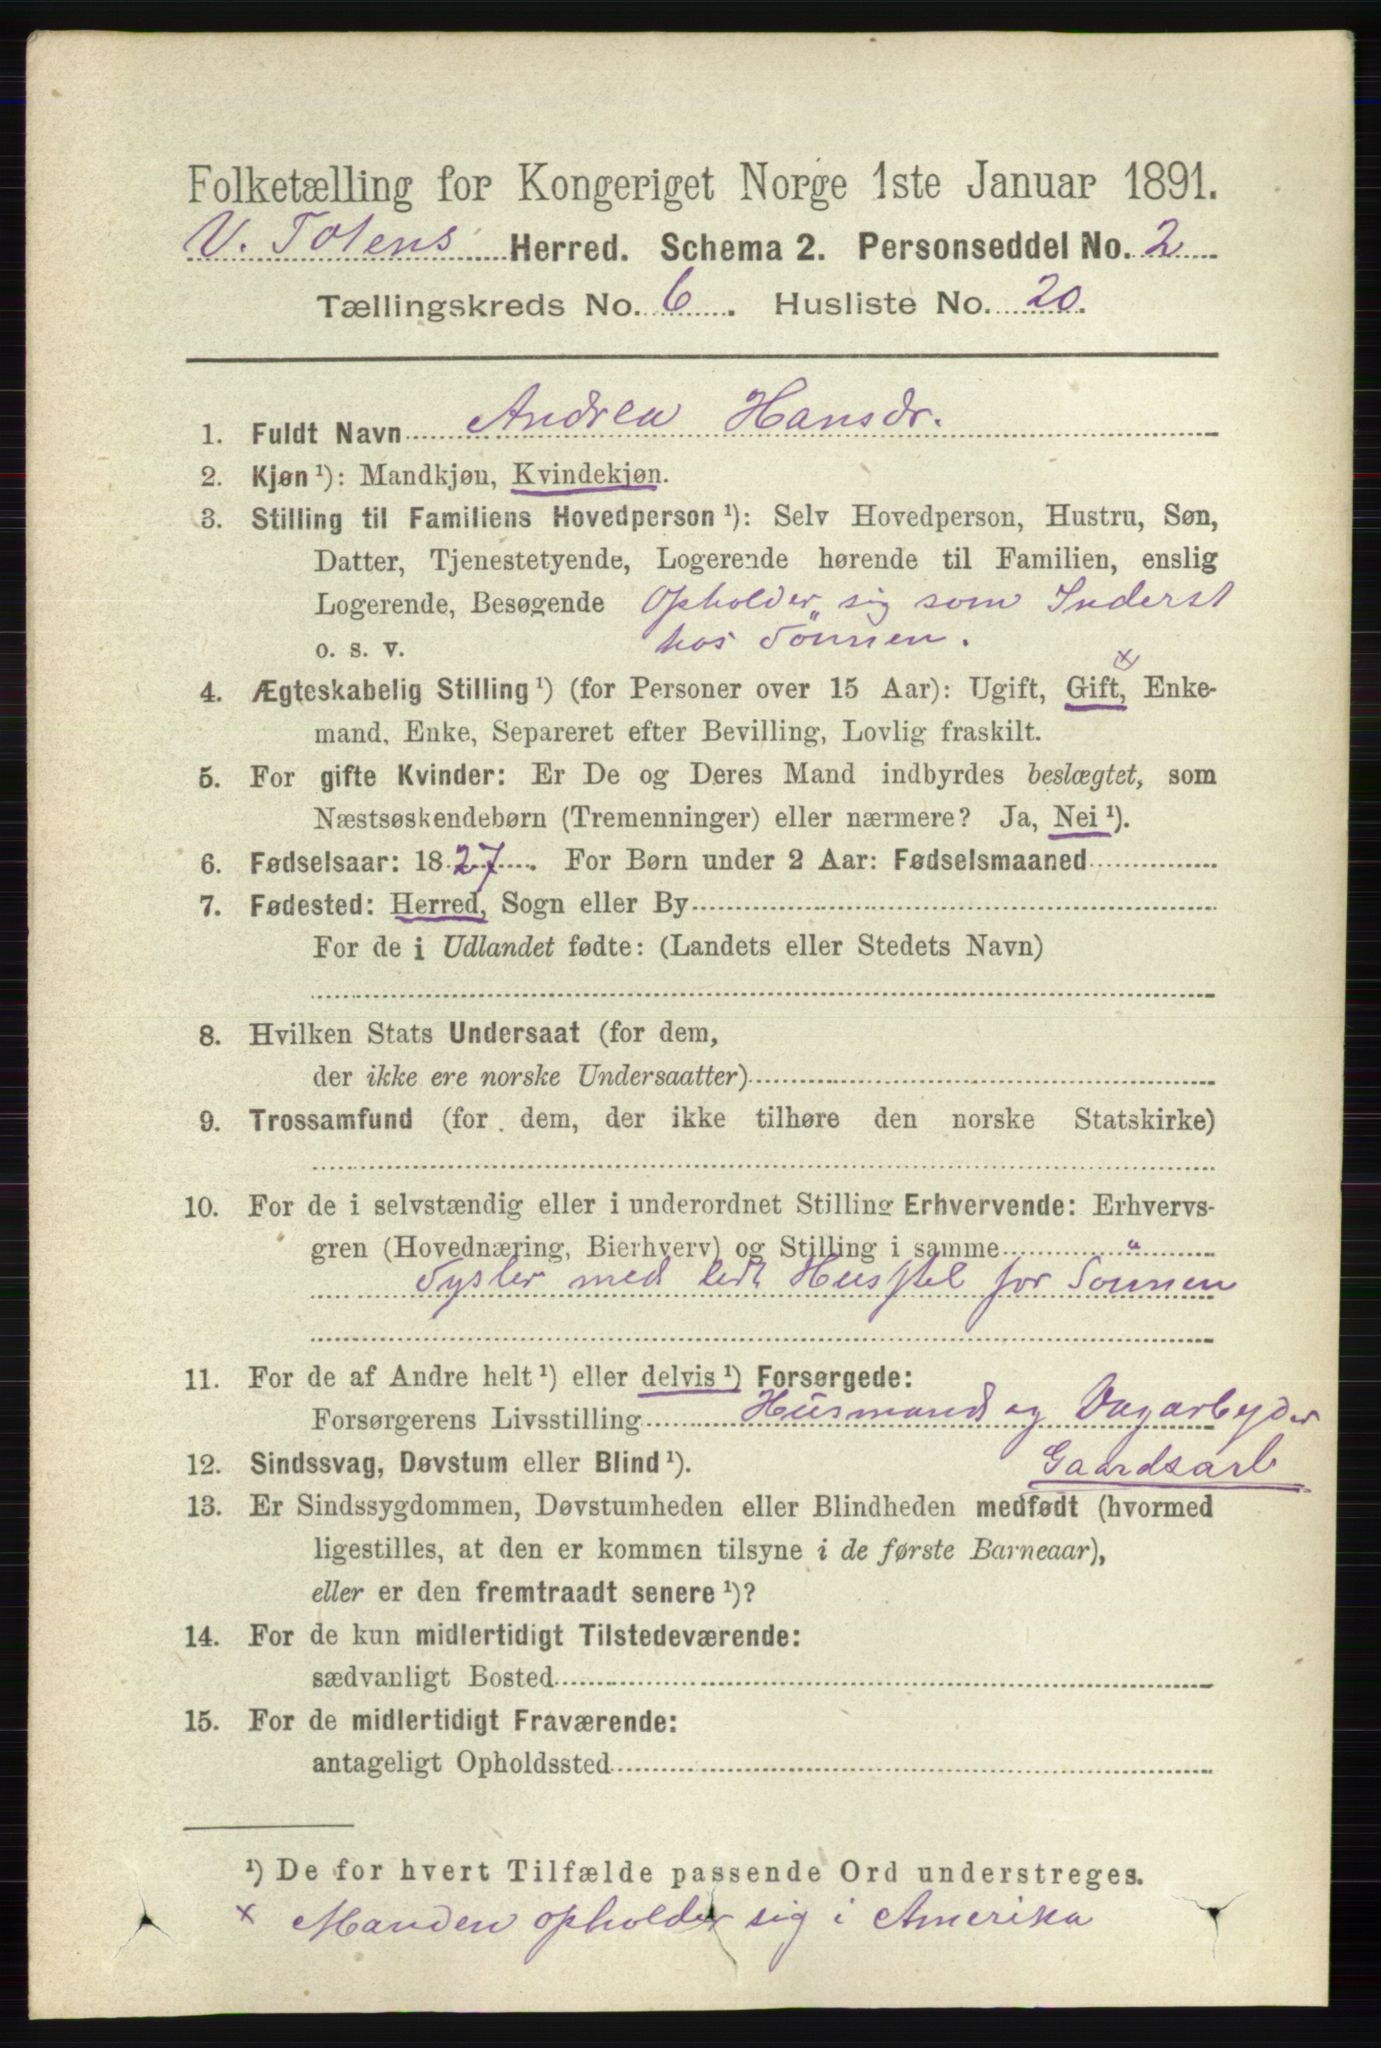 Folketælling for Kongeriget Norge 1ste Januar 1891.
V. Totens Herred. Schema 2. Personseddel No. 2
Tællingskreds No. 6. Husliste No. 20.
1. Fuldt Navn Andrea Hansdr.
2. Kjøn¹): Mandkjøn, Kvindekjøn.
3. Stilling til Familiens Hovedperson¹): Selv Hovedperson, Hustru, Søn,
Datter, Tjenestetyende, Logerende hørende til Familien, enslig
Logerende, Besøgende Opholder sig som Inderst
o. s. v. hos Sönnen.
4. Ægteskabelig Stilling¹) (for Personer over 15 Aar): Ugift, Gift, x Enke-
mand, Enke, Separeret efter Bevilling, Lovlig fraskilt.
5. For gifte Kvinder: Er De og Deres Mand indbyrdes beslægtet, som
Næstsøskendebørn (Tremenninger) eller nærmere? Ja, Nei¹).
6. Fødselsaar: 1827. For Børn under 2 Aar: Fødselsmaaned
7. Fødested: Herred, Sogn eller By
For de i Udlandet fødte: (Landets eller Stedets Navn)
8. Hvilken Stats Undersaat (for dem,
der ikke ere norske Undersaatter)
9. Trossamfund (for dem, der ikke tilhøre den norske Statskirke)
10. For de i selvstændig eller i underordnet Stilling Erhvervende: Erhvervs-
gren (Hovednæring, Bierhverv) og Stilling i samme
Sysler med lidt Husstel for Sönnen
11. For de af Andre helt¹) eller delvis¹) Forsørgede:
Forsørgerens Livsstilling Husmand og Dagarbeyder
12. Sindssvag, Døvstum eller Blind¹). Gaardsarb
13. Er Sindssygdommen, Døvstumheden eller Blindheden medfødt (hvormed
ligestilles, at den er kommen tilsyne i de første Barneaar),
eller er den fremtraadt senere¹)?
14. For de kun midlertidigt Tilstedeværende:
sædvanligt Bosted
15. For de midlertidigt Fraværende:
antageligt Opholdssted
¹) De for hvert Tilfælde passende Ord understreges.
x Manden opholder sig i Amerika